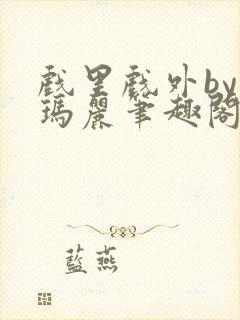 戲里戲外by
瑪麗筆趣閣
藍燕